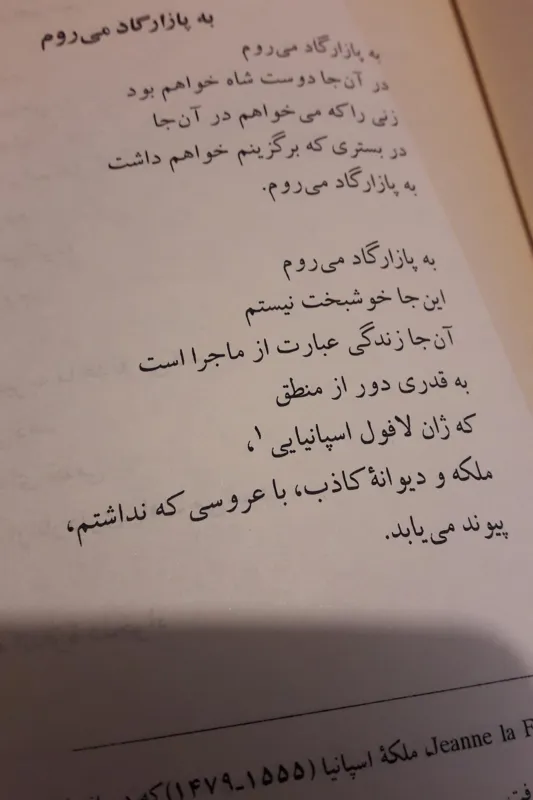 به پازارگاد می‌روم
به پازارگاد می‌روم
در آن‌جا دوست شاه خواهم بود
زنی را که می‌خواهم در آن‌جا
در بستری که برگزینم خواهم داشت
به پازارگاد می‌روم.
به پازارگاد می‌روم
این‌جا خوشبخت نیستم
آن‌جا زندگی عبارت از ماجرا است
به قدری دور از منطق
که ژان لافول اسپانیایی ۱،
ملکه و دیوانهٔ کاذب، با عروسی که نداشتم،
پیوند می‌یابد.
Jeanne la F، ملکهٔ اسپانیا (۱۵۵۵ـ۱۴۷۹) که